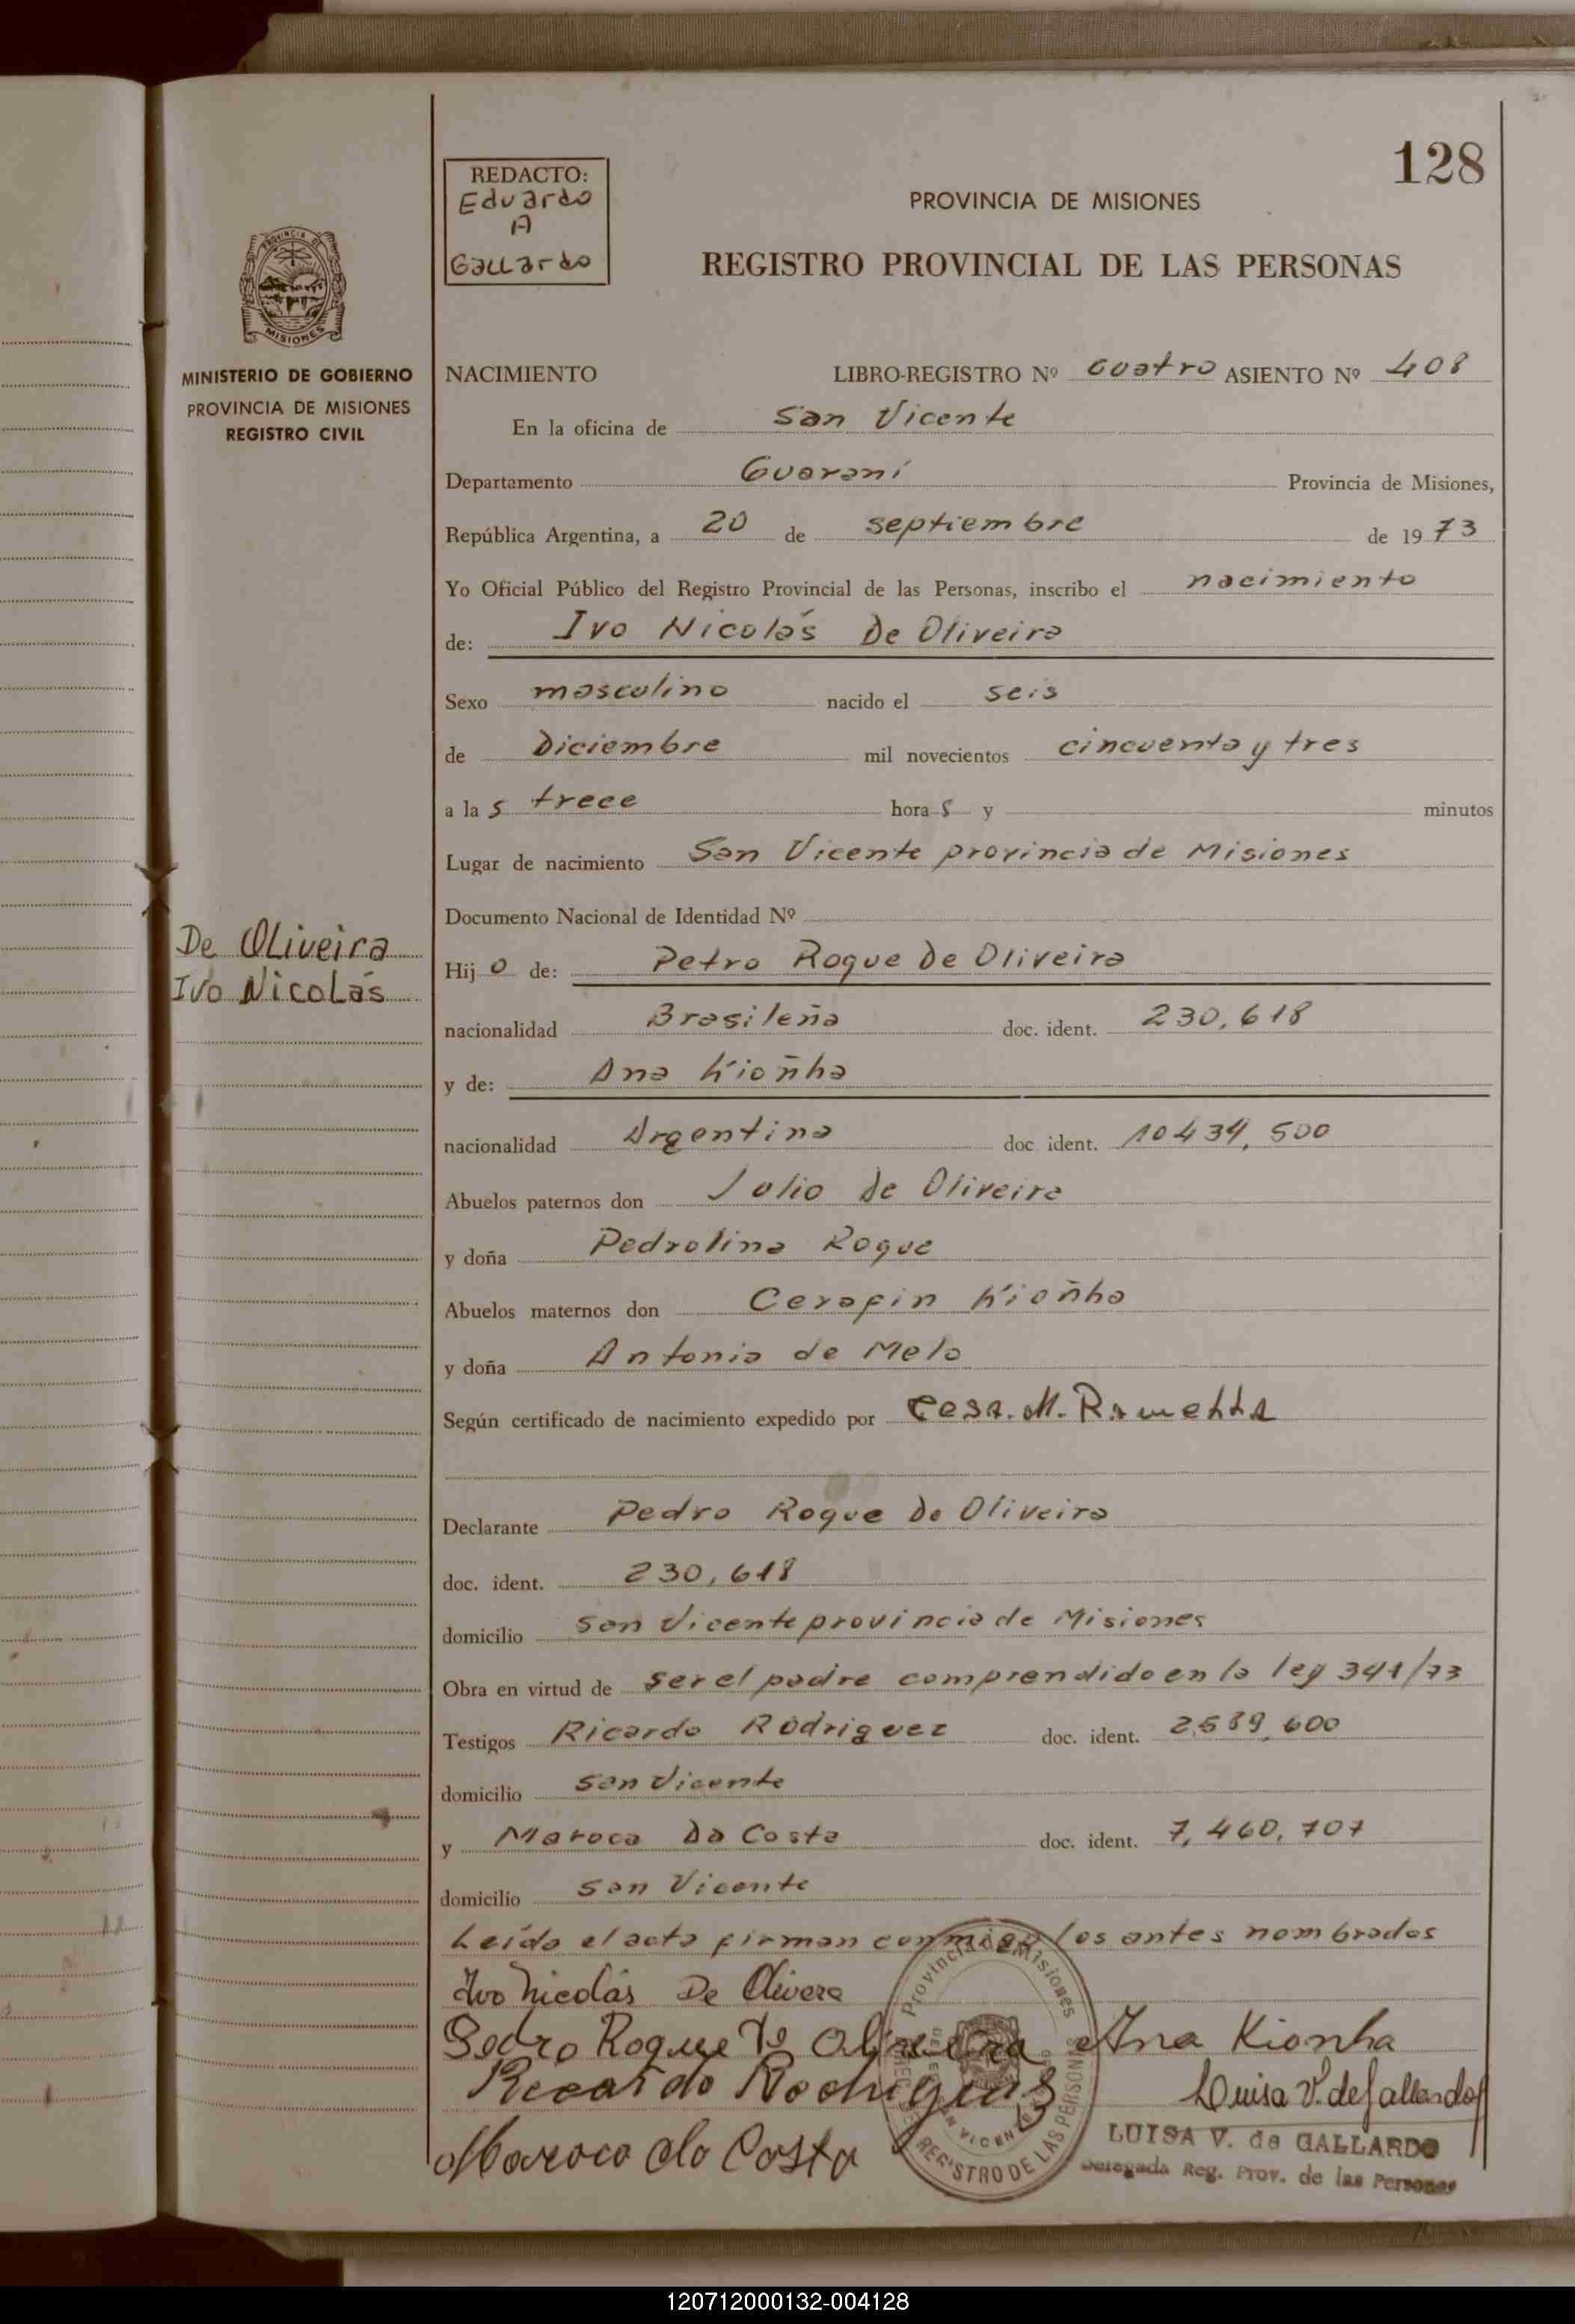 128
REDACTO:
Eduardo
A
Gallardo
PROVINCIA DE MISIONES
REGISTRO PROVINCIAL DE LAS PERSONAS
PROVINCIA DE
MISIONES
MINISTERIO DE GOBIERNO
PROVINCIA DE MISIONES
REGISTRO CIVIL
NACIMIENTO LIBRO-REGISTRO Nº cuatro ASIENTO Nº 408
En la oficina de San Vicente
Departamento Guaraní Provincia de Misiones,
República Argentina, a 20 de septiembre de 1973
Yo Oficial Público del Registro Provincial de las Personas, inscribo el nacimiento
de: Ivo Nicolás De Oliveira
Sexo masculino nacido el seis
de Diciembre mil novecientos cincuenta y tres
a las trece horas y minutos
Lugar de nacimiento San Vicente provincia de Misiones
Documento Nacional de Identidad Nº
De Oliveira
Ivo Nicolás
Hijo de: Petro Roque De Oliveira
nacionalidad Brasileña doc. ident. 230,618
y de: Ana Kioñha
nacionalidad Argentina doc. ident. 10434,500
Abuelos paternos don Julio de Oliveira
y doña Pedrolina Roque
Abuelos maternos don Cerafin Kioñha
y doña Antonia de Melo
Según certificado de nacimiento expedido por
Declarante Pedro Roque De Oliveira
doc. ident. 230,618
domicilio San Vicente provincia de Misiones
Obra en virtud de ser el padre comprendido en la ley 341/73
Testigos Ricardo Rodriguez doc. ident. 2,589,600
domicilio San Vicente
y Maroca Da Costa doc. ident. 7,460,707
domicilio San Vicente
Leída el acta firman conmigo los antes nombrados
Ivo Nicolás De Olivera
Pedro Roque De Oliveira Ana Kionha
Ricardo Rodrigues Luisa V. de Gallardo
Maroca da Costa
Provincia de Misiones
REGISTRO DE LAS PERSONAS
SAN VICENTE
LUISA V. de GALLARDO
Delegada Reg. Prov. de las Personas
120712000132-004128